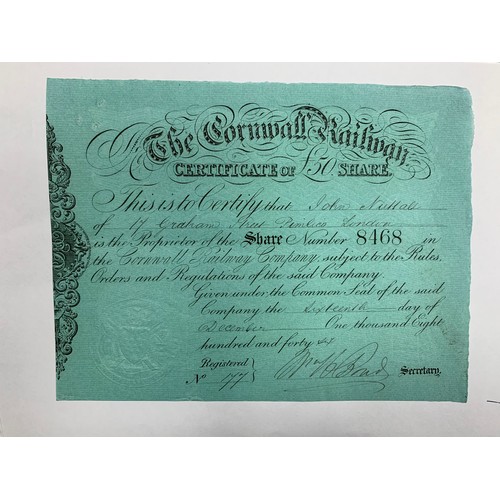 The Cornwall Railway
CERTIFICATE OF £50 SHARE.
This is to Certify that John Nuttall
of 17 Graham Street Pimlico London
is the Proprietor of the Share Number 8468 in
the Cornwall Railway Company, subject to the Rules,
Orders and Regulations of the said Company.
Given under the Common Seal of the said
Company the Sixteenth day of
December One thousand Eight
hundred and forty six
Registered
No 177
Secretary.